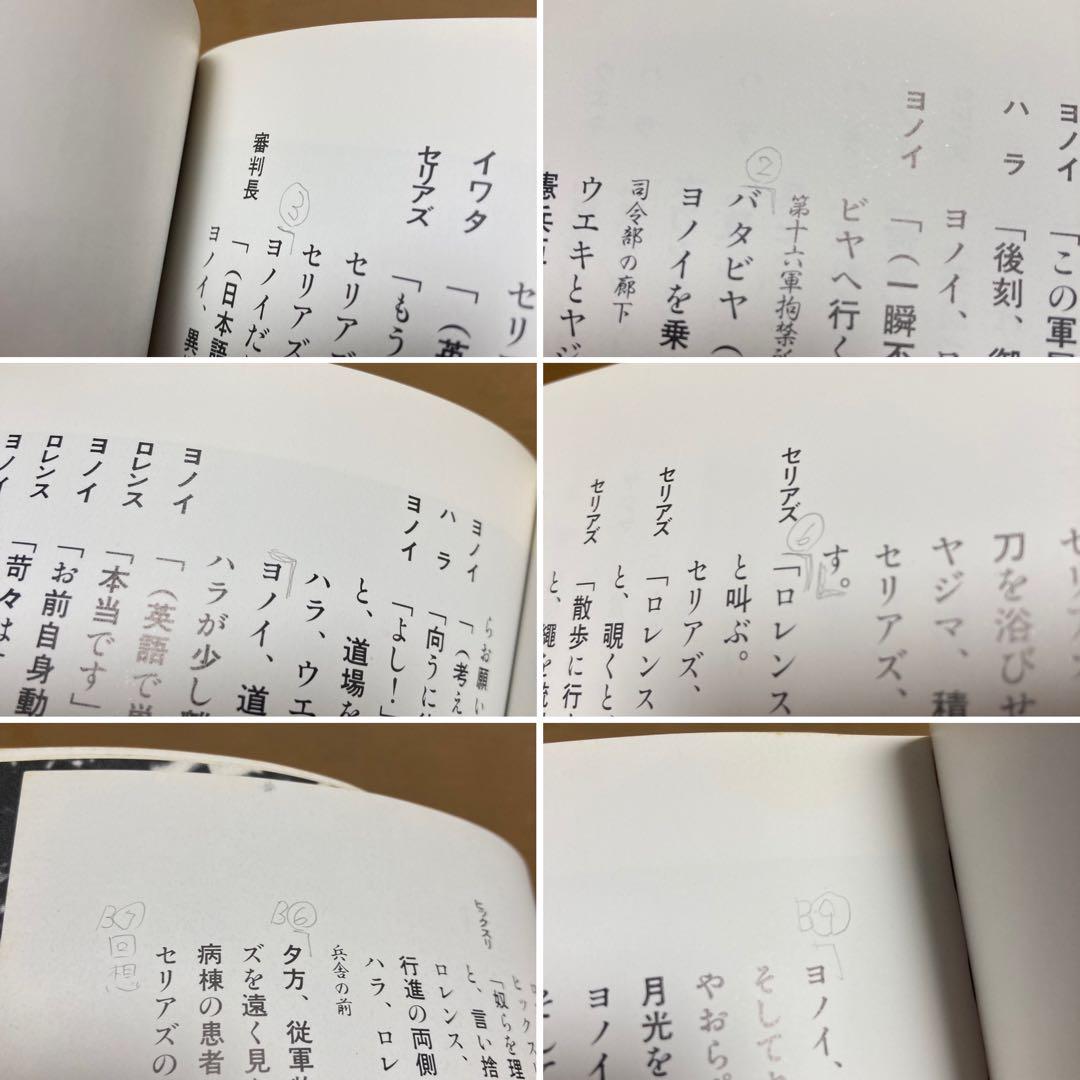 セリ
イワタ
「（英
セリアズ
「もう
セリア
セリアズ
③
ヨノイだ
審判長
「（日本語
ヨノイ、異
ヨノイ
「この軍
ハラ
「後刻、御
ヨノイ、
ヨノイ
「（一瞬不
ビヤへ行く
第十六軍拘禁所
②
バタビヤ（
ヨノイを乗
司令部の廊下
ウエキとヤジ
憲兵
らお願い
ヨノイ
「（考え
ハラ
「向うに
ヨノイ
「よし！」
と、道場を
ハラ、ウエ
ヨノイ、道
ハラが少し
ヨノイ
「（英語で
ロレンス
「本当です」
ヨノイ
「お前自身動
ロレンス
「苛々は
ヨノイ
セリアズ
刀を浴びせ
ヤジマ、積
セリアズ、
す。
⑥
セリアズ
「ロレンス
と叫ぶ。
セリアズ、
セリアズ
「ロレンス
と、覗くと
セリアズ
「散歩に行
と、縄を
ヒックスリ
「奴らを理
と、言い捨
ロレンス、
行進の両側
ハラ、ロレ
兵舎の前
B⑥
夕方、従軍
ズを遠く見
病棟の患者
セリアズの
B⑦
回想
B⑨
ヨノイ、
そして
やおら。
月光を
ヨノイ
そして